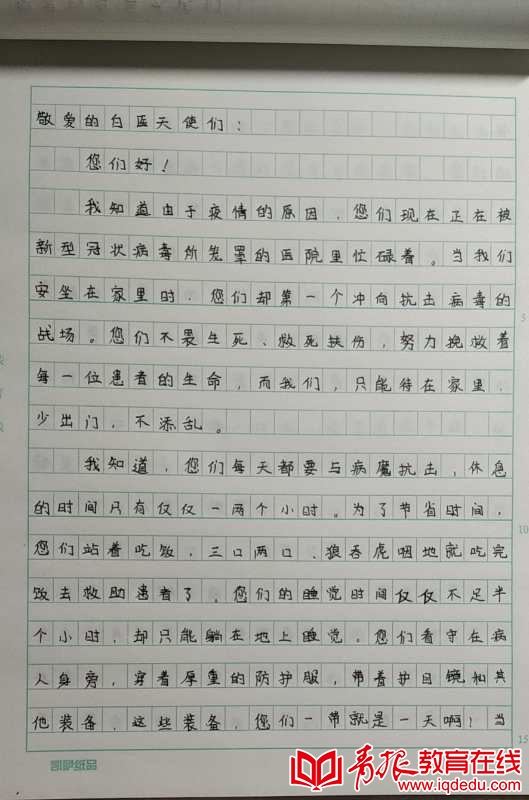 敬爱的白医天使们：
您们好！
我知道由于疫情的原因，您们现在正在被
新型冠状病毒所笼罩的医院里忙碌着。当我们
安坐在家里时，您们却第一个冲向抗击病毒的
战场。您们不畏生死、救死扶伤，努力挽救着
每一位患者的生命，而我们，只能待在家里，
少出门，不添乱。
我知道，您们每天都要与病魔抗击，休息
的时间只有仅仅一两个小时。为了节省时间，
您们站着吃饭，三口两口、狼吞虎咽地就吃完
饭去救助患者了。您们的睡觉时间仅仅不足半
个小时，却只能躺在地上睡觉。您们看守在病
人身旁，穿着厚重的防护服，带着护目镜和其
他装备，这些装备，您们一带就是一天啊！当
5
10
15
青报教育在线
www.iqdedu.com